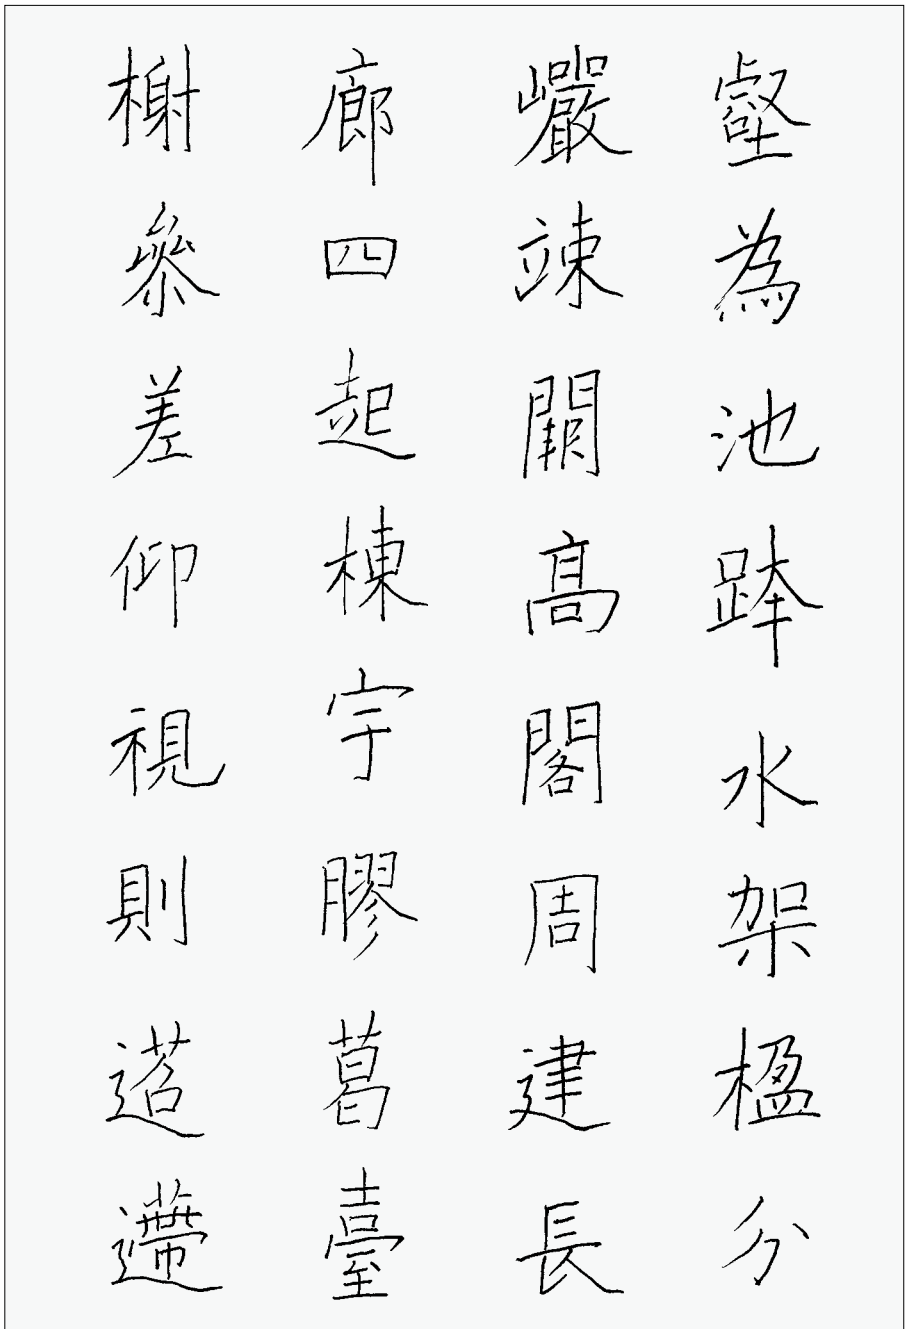 壑為池跨水架楹分
巖竦闕髙閣周建長
廊四起棟宇膠葛臺
榭參差仰視則迢遰